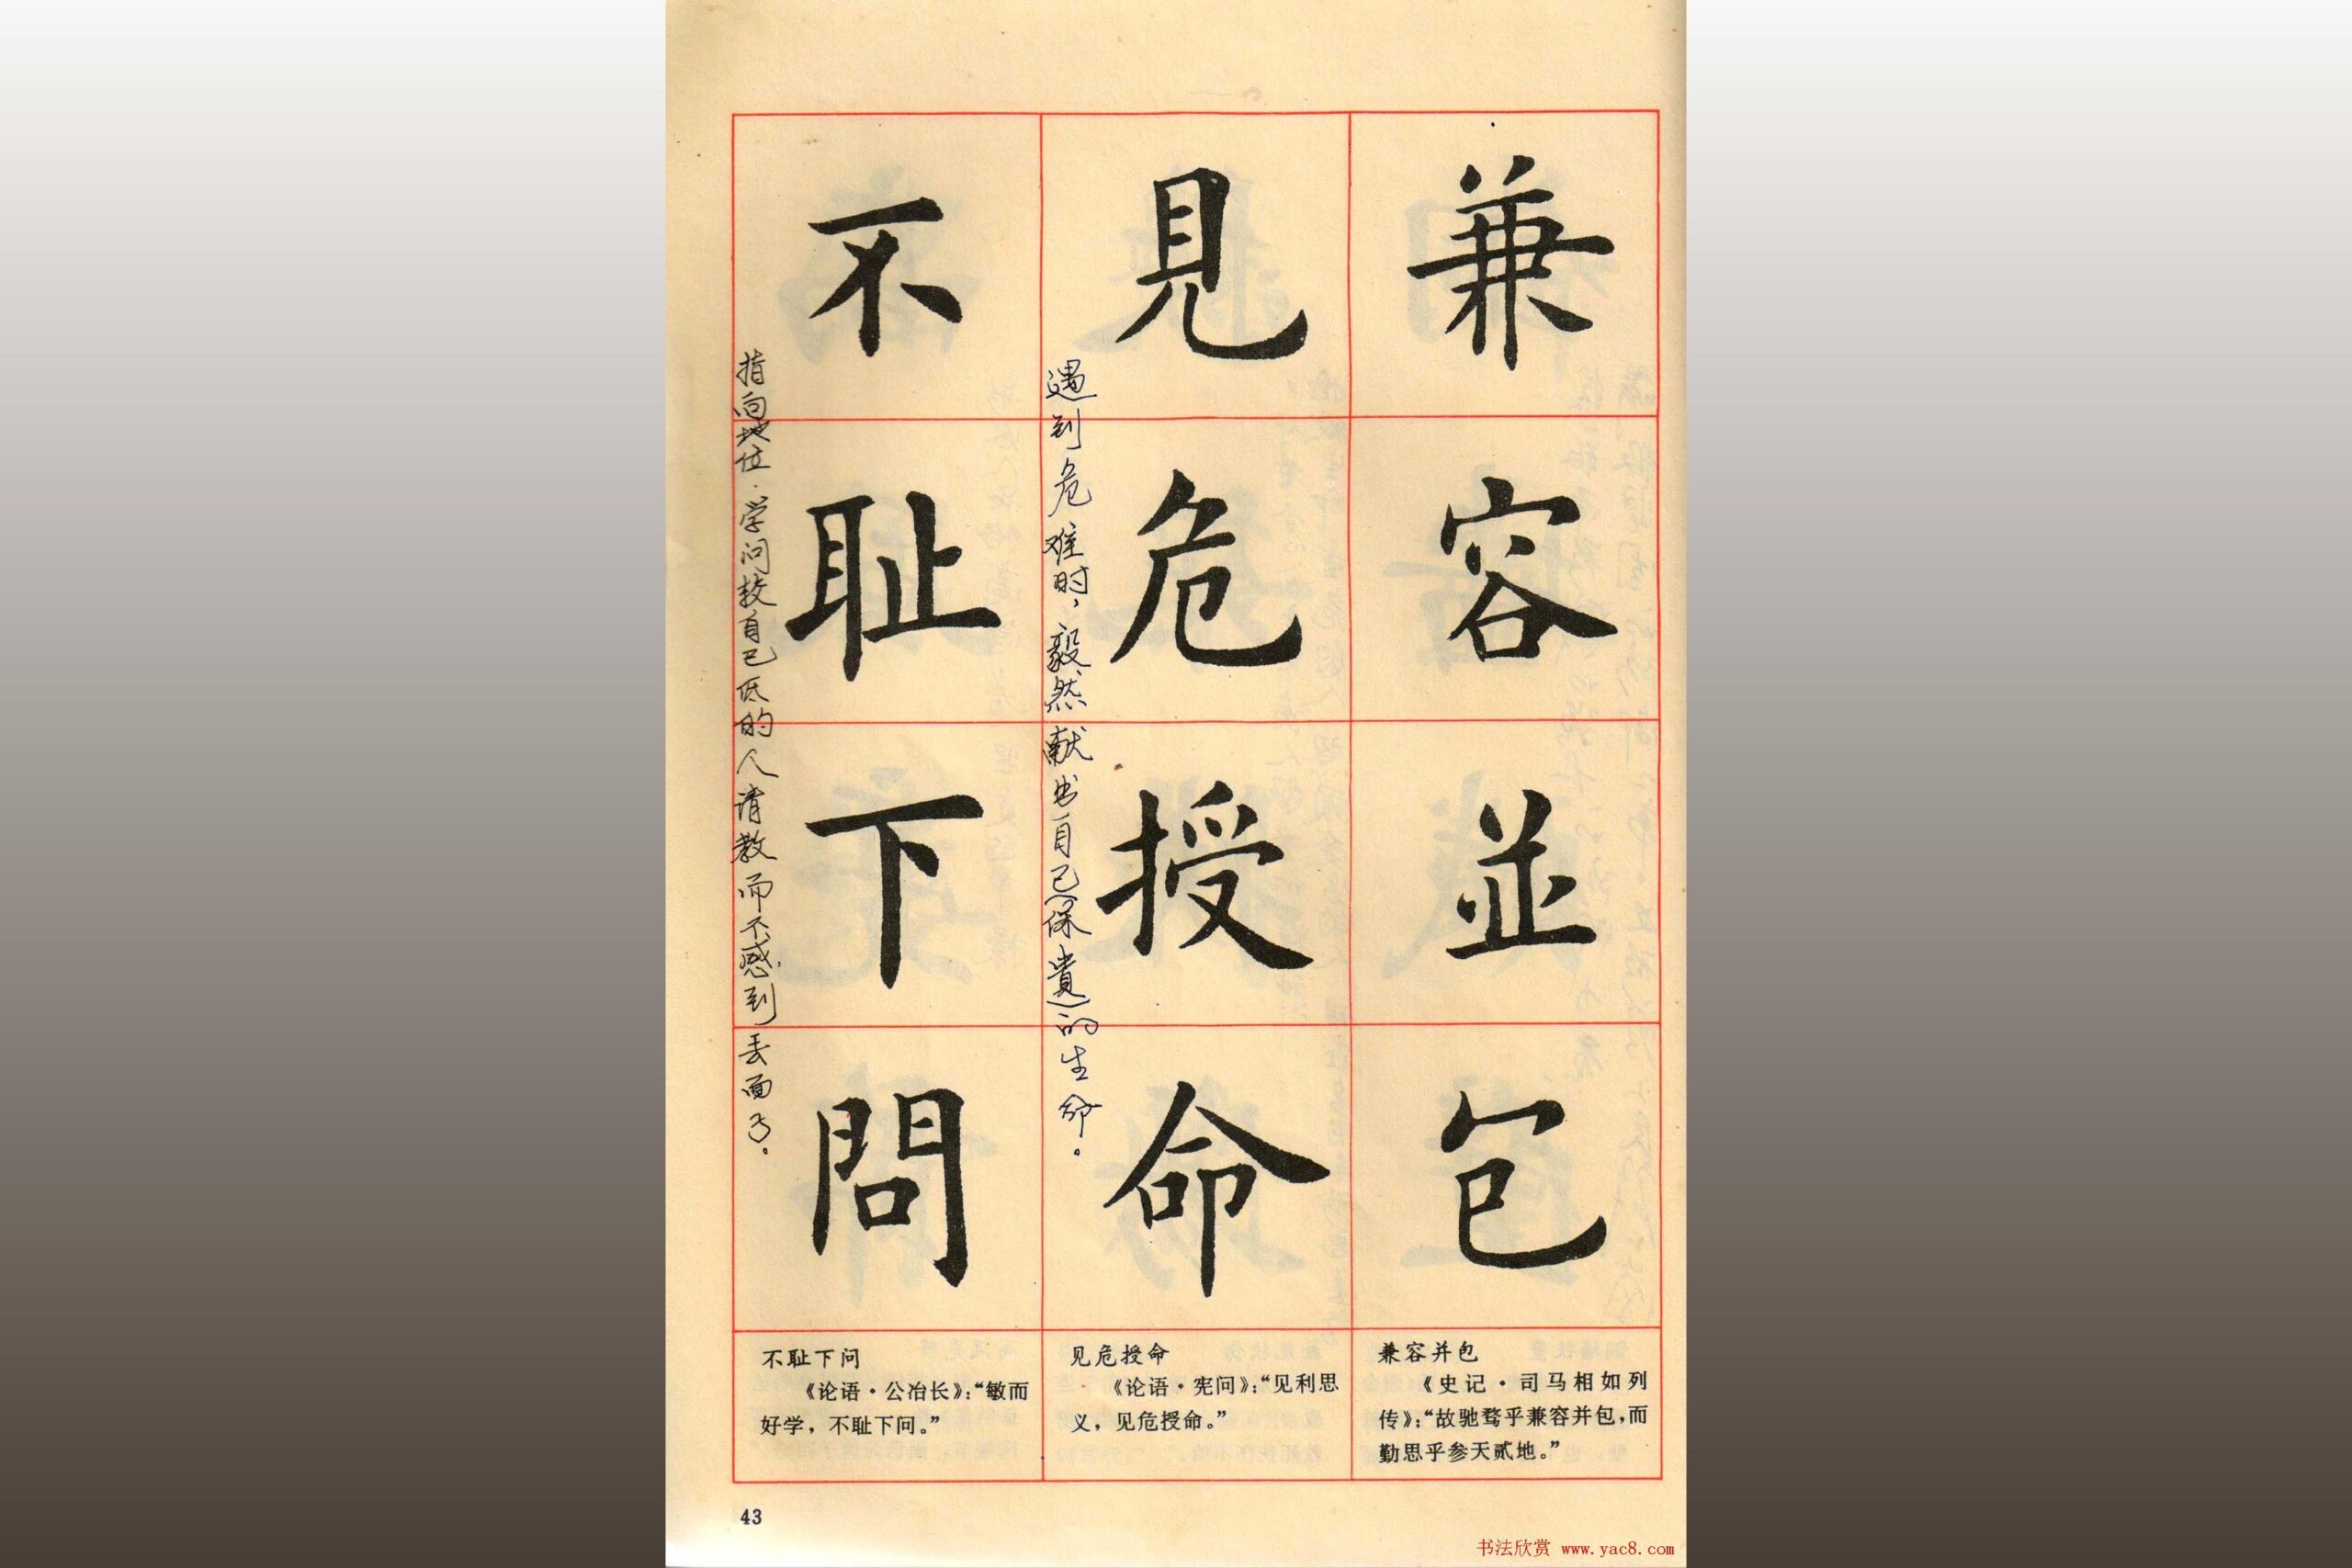 兼容並包
見危授命
遇到危难时，毅然献出自己(保貴)的生命.
不耻下問
指向地位.学问较自己低的人请教而不感到丢面子.
兼容并包
《史记·司马相如列
传》：“故驰骛乎兼容并包，而
勤思乎参天贰地。”
见危授命
《论语·宪问》：“见利思
义，见危授命。”
不耻下问
《论语·公冶长》：“敏而
好学，不耻下问。”
43
书法欣赏 www.yac8.com